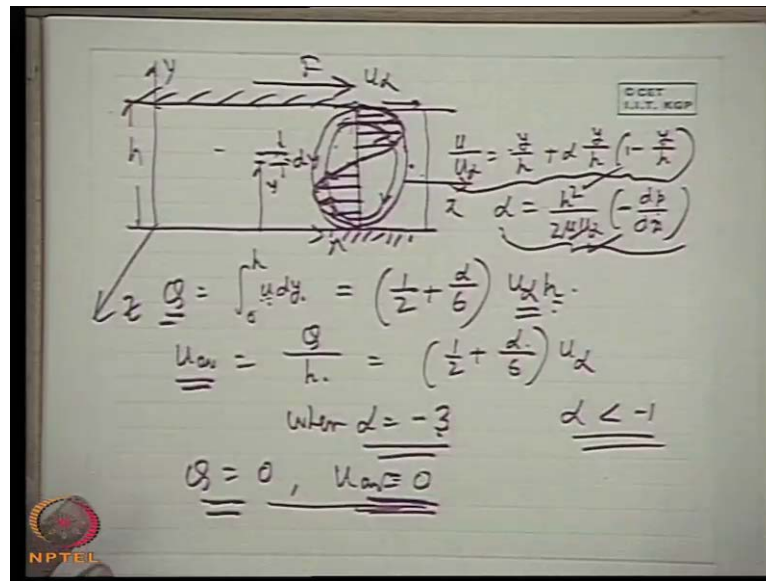 y F u∞
© CET
I.I.T. KGP
h y dy u/u∞ = y/h + α y/h (1 - y/h)
x
α = h²/2μu∞ (-dp/dx)
z Q = ∫₀ʰ u dy. = (1/2 + α/6) u∞ h.
u_av = Q/h. = (1/2 + α/6) u∞
when α = -3 α < -1
Q = 0, u_av = 0
NPTEL